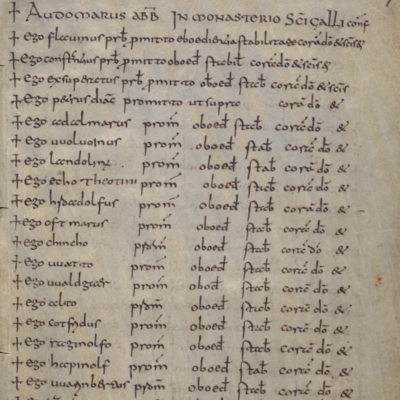 + AUDOMARUS ABB IN MONASTERIO SCI GALLI conf
+ ego flavinus prb pmitto eboedientia stabilitate corā dō & scis
+ ego constentius prb pmitto oboed stabil corā dō & scis
+ ego exsuperatus prb pmitto oboed stab corā dō & scis
+ ego petrus diac promitto ut supra corā dō &
+ ego adalmarus prom oboed stab corā dō &
+ ego uuoluoinus prom oboed stab corā dō &
+ ego landolinc prom oboed stab corā dō &
+ ego echo Theotini prom oboed stab corā dō &
+ ego hrodolfus prom oboed stab corā dō &
+ ego oftmarus prom oboed stab corā dō &
+ ego chincho prom oboed stab corā dō &
+ ego uuatito prom oboed stab corā dō &
+ ego uualdgaer prom oboed stab corā dō &
+ ego alito prom oboed stab corā dō &
+ ego cotfridus prom oboed stab corā dō &
+ ego raginolfo prom oboed stab corā dō &
+ ego haginolf prom oboed stab corā dō &
+ ego prom oboed stab corā dō &